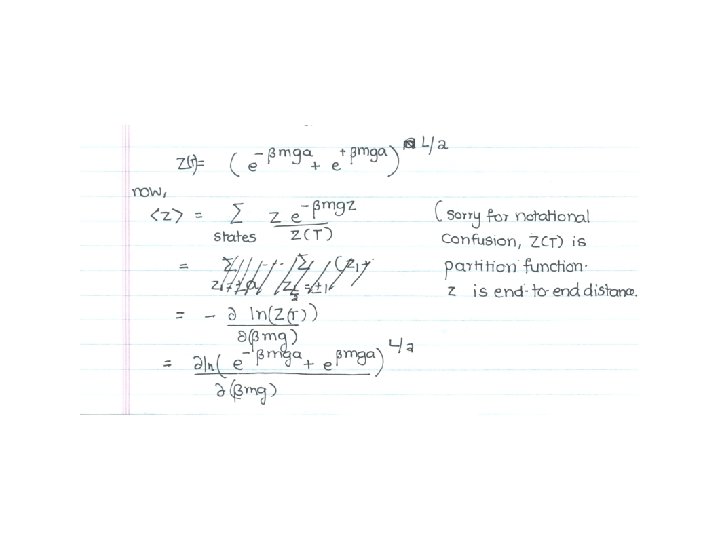 Z(T)= ( e^{-βmga} + e^{+βmga} )^{L/a}
now,
<z> = Σ_{states} z e^{-βmgz} / Z(T)
(Sorry for notational
confusion, Z(T) is
partition function.
z is end-to-end distance.
= - ∂ ln(Z(T)) / ∂(βmg)
= ∂ln( e^{-βmga} + e^{βmga} )^{L/a} / ∂(βmg)